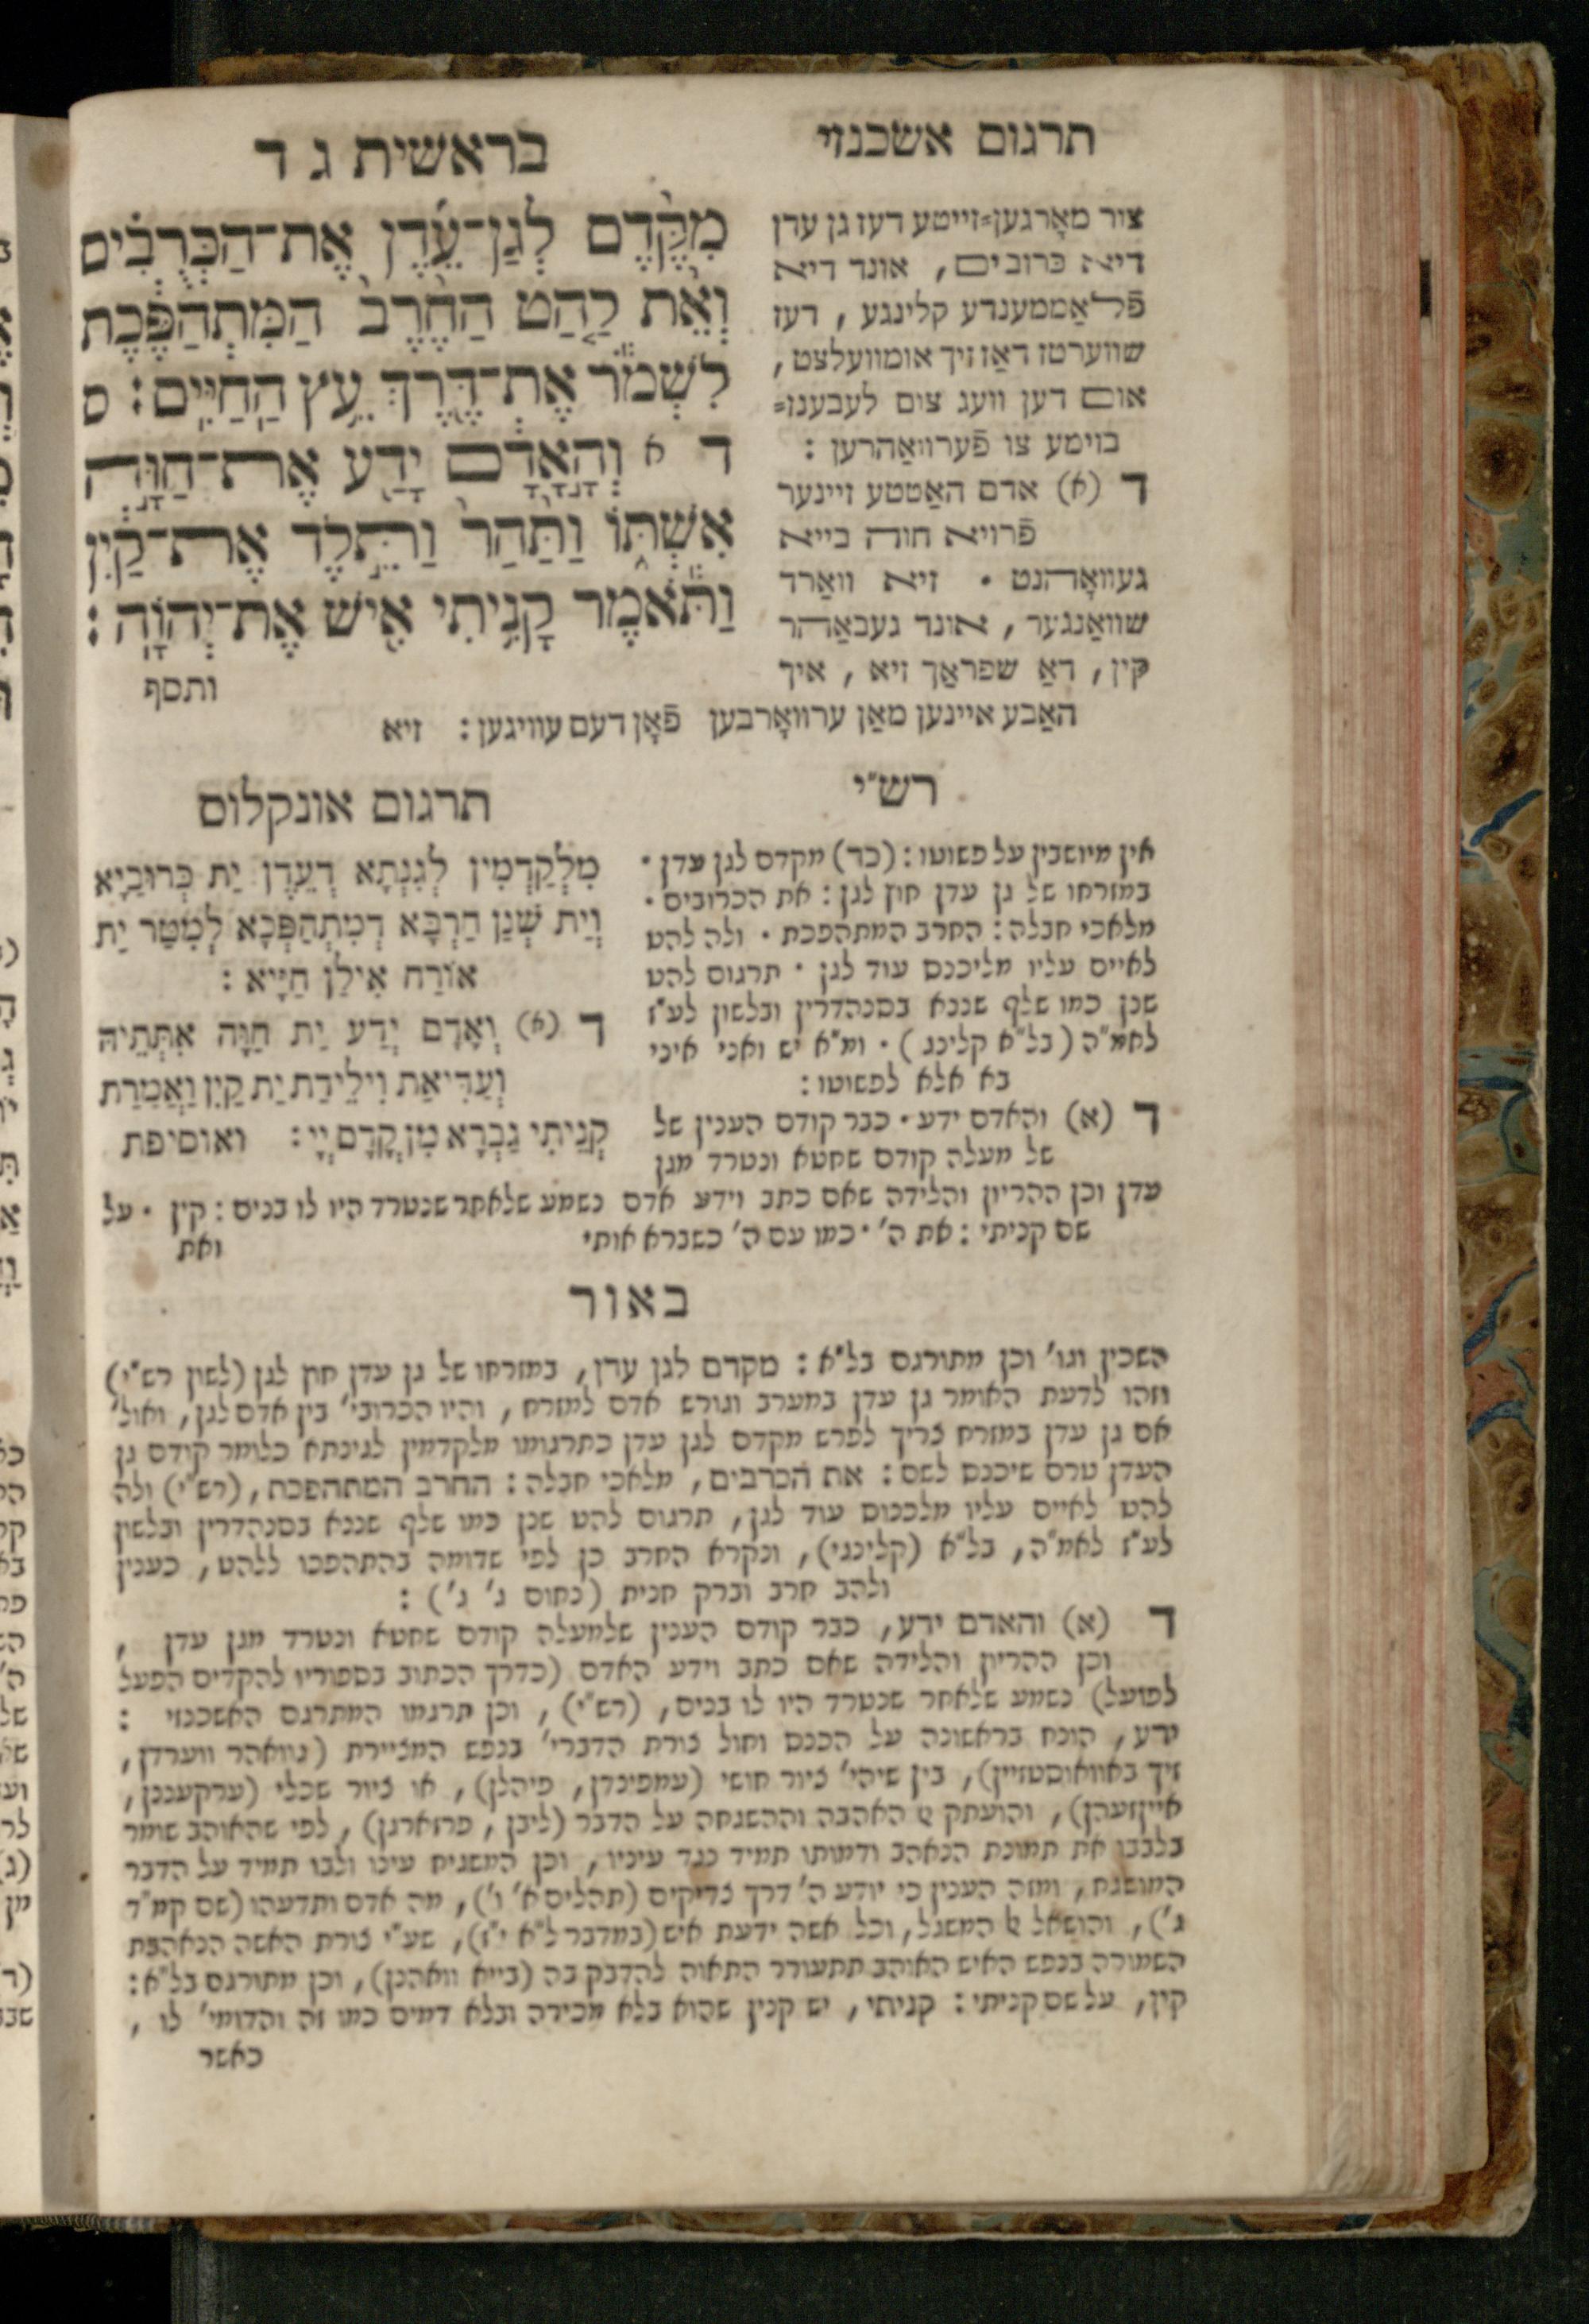 תרגום אשכנזי
בראשית ג ד
מִקֶּ֨דֶם לְגַן־עֵ֜דֶן אֶת־הַכְּרֻבִ֗ים
וְאֵ֨ת לַ֤הַט הַחֶ֙רֶב֙ הַמִּתְהַפֶּ֔כֶת
לִשְׁמֹ֕ר אֶת־דֶּ֖רֶךְ עֵ֥ץ הַֽחַיִּֽים׃ ס
ד א וְהָ֣אָדָ֔ם יָדַ֖ע אֶת־חַוָּ֣ה
אִשְׁתּ֑וֹ וַתַּ֙הַר֙ וַתֵּ֣לֶד אֶת־קַ֔יִן
וַתֹּ֕אמֶר קָנִ֥יתִי אִ֖ישׁ אֶת־יְהוָֹֽה׃
ותסף
צור מאָרגען=זייטע דעז גן עדן
דיא כרובים, אונד דיא
פֿלאַממענדע קלינגע, דעז
שווערטז דאַז זיך אומוועלצט,
אום דען וועג צום לעבענז=
בוימע צו פֿערוואַהרען :
ד (א) אדם האַטטע זיינער
פֿרויא חוה בייא
געוואָהנט . זיא וואַרד
שוואַנגער, אונד געבאַהר
קין, דאַ שפראַך זיא, איך
האַבע איינען מאַן ערוואָרבען פֿאָן דעם עוויגען : זיא
רש"י
אין מיושבין על פשוטו : (כד) מקדם לגן עדן .
במזרחו של גן עדן חוץ לגן : את הכרובים .
מלאכי חבלה : החרב המתהפכת . ולה להט
לאיים עליו מליכנס עוד לגן . תרגום להט
שנן כמו שלף שננא בסנהדרין ובלשון לע"ז
לאמ"ה (בל"א קלינג) . ומ"א יש ואני איני
בא אלא לפשוטו :
ד (א) והאדם ידע . כבר קודם הענין של
של מעלה קודם שחטא ונטרד מגן
עדן וכן ההריון והלידה שאם כתב וידע אדם נשמע שלאחר שנטרד היו לו בנים : קין . על
שם קניתי : את ה' . כמו עם ה' כשברא אותי
ואת
תרגום אונקלוס
מִלְקַדְמִין לְגִנְתָא דְעֵדֶן יַת כְּרוּבַיָא
וְיַת שְׁנַן חַרְבָּא דְמִתְהַפְּכָא לְמִטַר יַת
אוֹרַח אִילַן חַיָיא :
ד (א) וְאָדָם יְדַע יַת חַוָּה אִתְּתֵיהּ
וְעַדִּיאַת וִילֵידַת יַת קַיִן וַאֲמֶרַת
קְנֵיתִי גַבְרָא מִן קֳדָם יְיָ : ואוסיפת
באור
השכין וגו' וכן מתורגם בל"א : מקדם לגן עדן, במזרחו של גן עדן חוץ לגן (לשון רש"י)
וזהו לדעת האומר גן עדן במערב וגורש אדם למזרח, והיו הכרובי' בין אדם לגן, ואול'
אם גן עדן במזרח צריך לפרש מקדם לגן עדן כתרגומו מלקדמין לגינתא כלומר קודם גן
העדן טרם שיכנס לשם : את הכרבים, מלאכי חבלה : החרב המתהפכת, (רש"י) ולה
להט לאיים עליו מלכנוס עוד לגן, תרגום להט שנן כמו שלף שננא בסנהדרין ובלשון
לע"ז לאמ"ה, בל"א (קלינגי), ונקרא החרב כן לפי שדומה בהתהפכו ללהט, כענין
ולהב חרב וברק חנית (נחום ג' ג') :
ד (א) והאדם ידע, כבר קודם הענין שלמעלה קודם שחטא ונטרד מגן עדן ,
וכן ההריון והלידה שאם כתב וידע האדם (כדרך הכתוב בספוריו להקדים הפעל
לפועל) נשמע שלאחר שנטרד היו לו בנים, (רש"י), וכן תרגמו המתרגם האשכנזי :
ידע, הונח בראשונה על הכנס וחול צורת הדברי' בנפש המציירת (גוואהר ווערדן,
זיך באוואוסטזיין), בין שיהי' ציור חושי (עמפינדן, פיהלן), או ציור שכלי (ערקעננן,
איינזעהן), והועתק אל האהבה וההשגחה על הדבר (ליבן, פרזארגן), לפי שהאוהב שומר
בלבבו את תמונת הנאהב ודמותו תמיד נגד עיניו, וכן המשגיח עינו ולבו תמיד על הדבר
המושגח, ומזה הענין כי יודע ה' דרך צדיקים (תהלים א' ו'), מה אדם ותדעהו (שם קמ"ד
ג'), והושאל אל המשגל, וכל אשה ידעת איש (במדבר ל"א י"ז), שע"י צורת האשה הנאהבת
השמורה בנפש האיש האוהב תתעורר התאוה להדבק בה (בייא וואהנן), וכן מתורגם בל"א :
קין, על שם קניתי : קניתי, יש קנין שהוא בלא מכירה ובלא דמים כמו זה והדומי' לו ,
כאשר